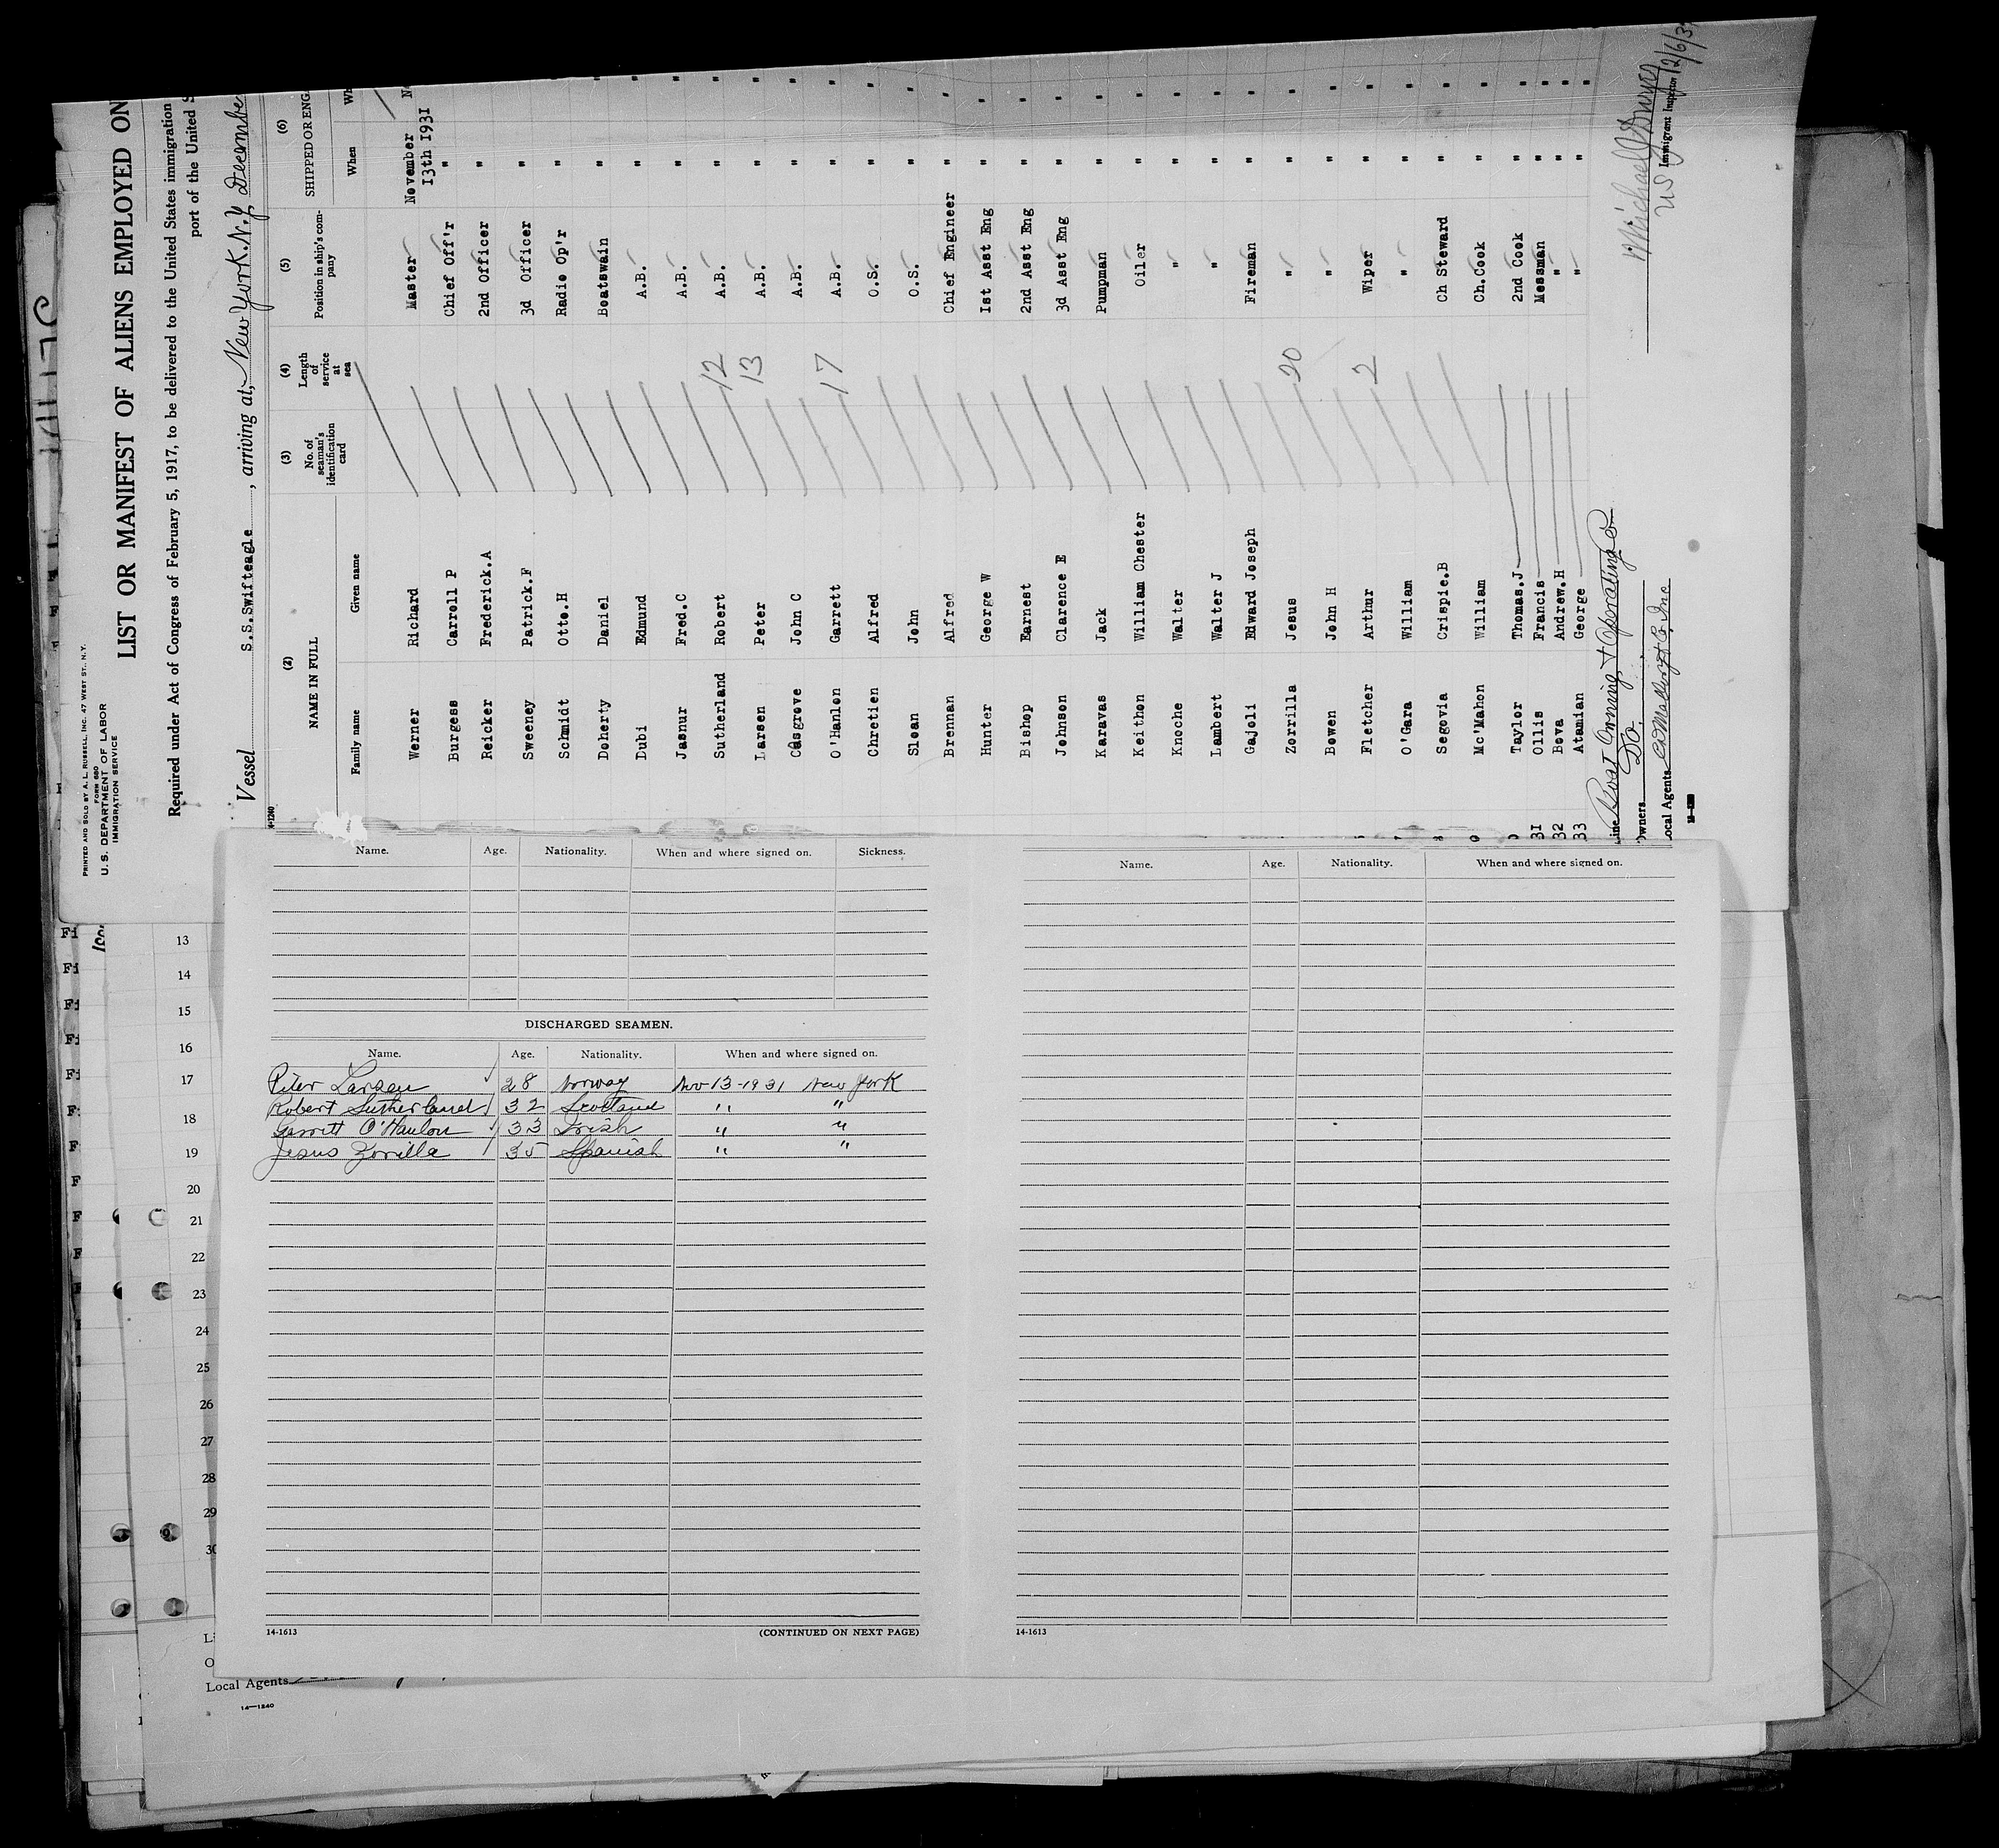 PRINTED AND SOLD BY A. L. RUSSELL, INC. 47 WEST ST., N.Y.
FORM 680
U. S. DEPARTMENT OF LABOR
IMMIGRATION SERVICE
LIST OR MANIFEST OF ALIENS EMPLOYED ON
Required under Act of Congress of February 5, 1917, to be delivered to the United States immigration
port of the United S
Vessel S.S.Swifteagle, arriving at New York.N.Y, Decembe
(2) (3) (4) (5) (6)
NAME IN FULL No. of seaman's identification card Length of service at sea Position in ship's company SHIPPED OR ENG
Family name Given name When Wh
Werner Richard Master November 13th 1931 No
Burgess Carroll P Chief Off'r " "
Reicker Frederick.A 2nd Officer " "
Sweeney Patrick.F 3d Officer " "
Schmidt Otto.H Radio Op'r " "
Doherty Daniel Boatswain " "
Dubi Edmund A.B. " "
Jasnur Fred.C A.B. " "
Sutherland Robert 12 A.B. " "
Larsen Peter 13 A.B. " "
Cosgrove John C A.B. " "
O'Hanlon Garrett 17 A.B. " "
Chretien Alfred O.S. " "
Sloan John O.S. " "
Brennan Alfred Chief Engineer " "
Hunter George W 1st Asst Eng " "
Bishop Earnest 2nd Asst Eng " "
Johnson Clarence E 3d Asst Eng " "
Karavas Jack Pumpman " "
Keithon William Chester Oiler " "
Knoche Walter " " "
Lambert Walter J " " "
Gajoli Edward Joseph Fireman " "
Zorilla Jesus 20 " " "
Bowen John H " " "
Fletcher Arthur 2 Wiper " "
O'Gara William " " "
Segovia Crispie.B Ch Steward " "
Mc'Mahon William Ch.Cook " "
Taylor Thomas.J 2nd Cook " "
31 Ollis Francis Messman " "
32 Bova Andrew.H " " "
33 Atamian George " " "
Line Boat Owning & Operating Co
Owners Do.
Local Agents
Michael J Dwyer
US Immigrant Inspector 12/6/3
Name. Age. Nationality. When and where signed on. Sickness.
DISCHARGED SEAMEN.
Name. Age. Nationality. When and where signed on.
Peter Larsen 28 Norway Nov-13-1931 New York
Robert Sutherland 32 Scotland " "
Garrett O'Hanlon 33 Irish " "
Jesus Zorilla 35 Spanish " "
14-1613 (CONTINUED ON NEXT PAGE)
Name. Age. Nationality. When and where signed on.
14-1613
13
14
15
16
17
18
19
20
21
22
23
24
25
26
27
28
29
30
Local Agents
14—1240